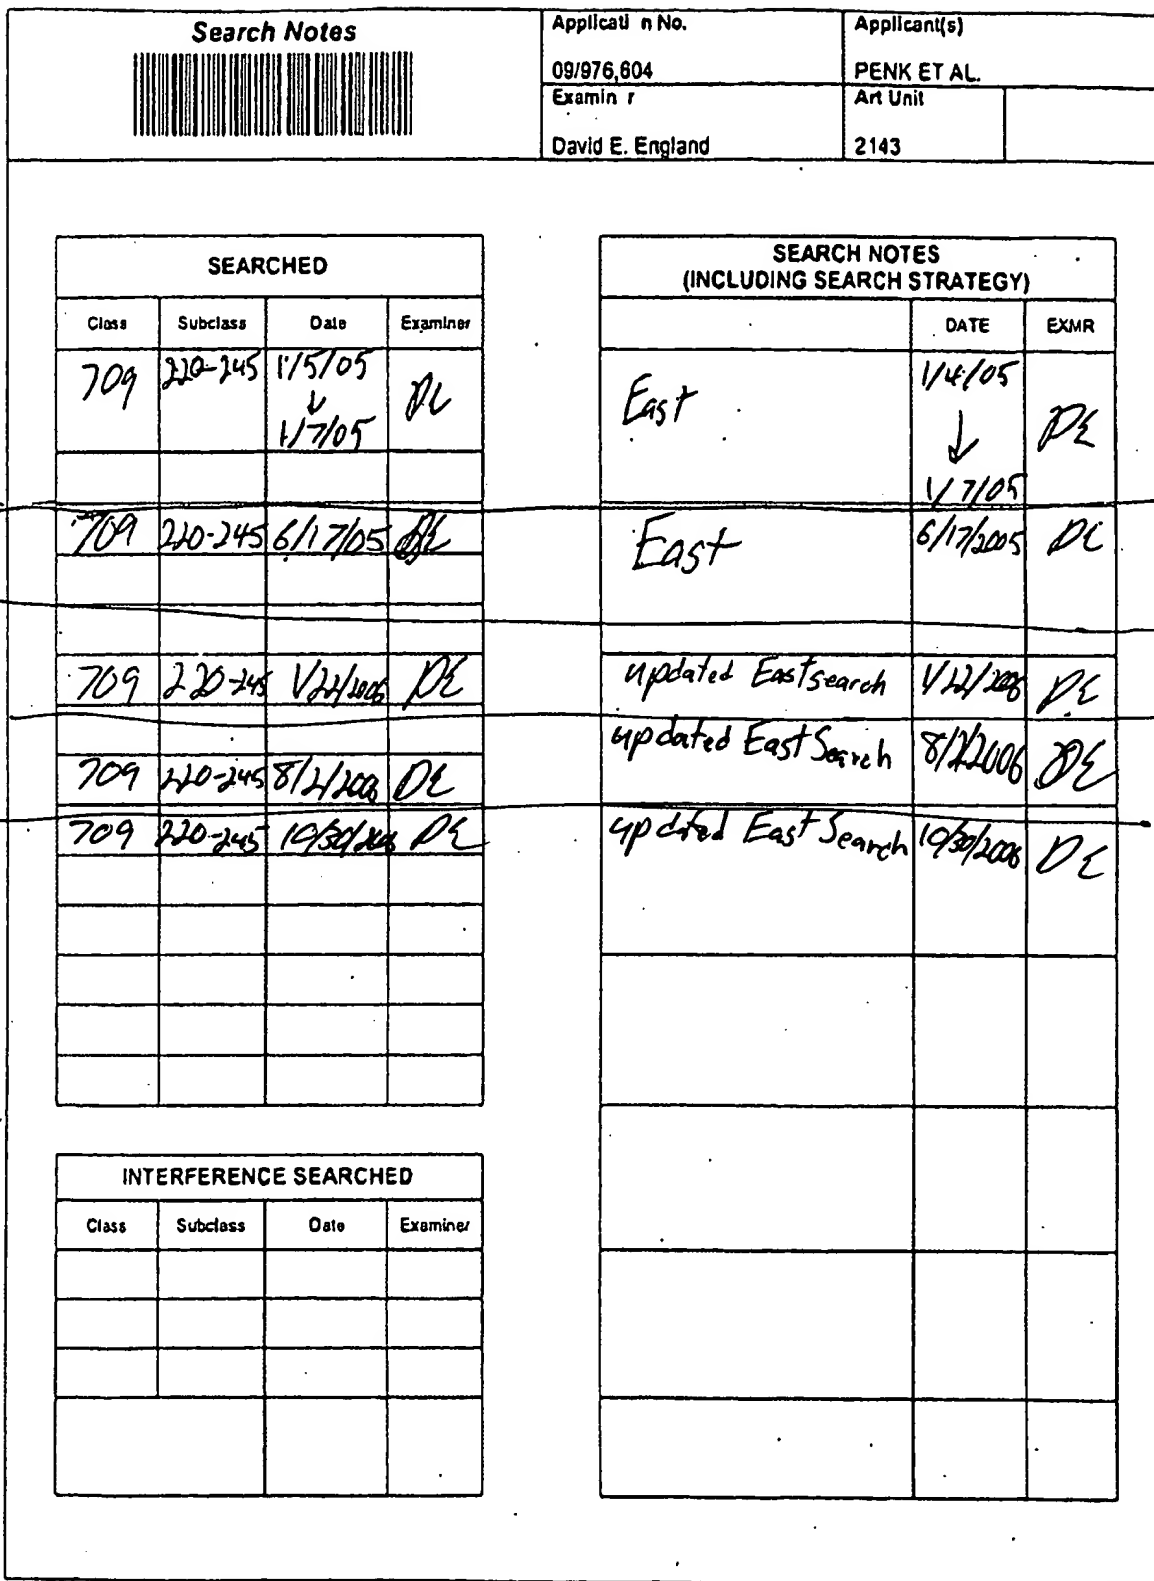 Search Notes
Applicati n No.
Applicant(s)
09/976,604
PENK ET AL.
Examin r
Art Unit
David E. England
2143
SEARCHED
Class Subclass Date Examiner
709 220-245 1/5/05 DE
↓
1/7/05
709 220-245 6/17/05 DE
709 220-245 1/22/2006 DE
709 220-245 8/2/2006 DE
709 220-245 10/30/2006 DE
INTERFERENCE SEARCHED
Class Subclass Date Examiner
SEARCH NOTES
(INCLUDING SEARCH STRATEGY)
DATE EXMR
East 1/4/05 DE
↓
1/7/05
East 6/17/2005 DE
updated East search 1/22/2006 DE
updated East Search 8/2/2006 DE
updated East Search 10/30/2006 DE